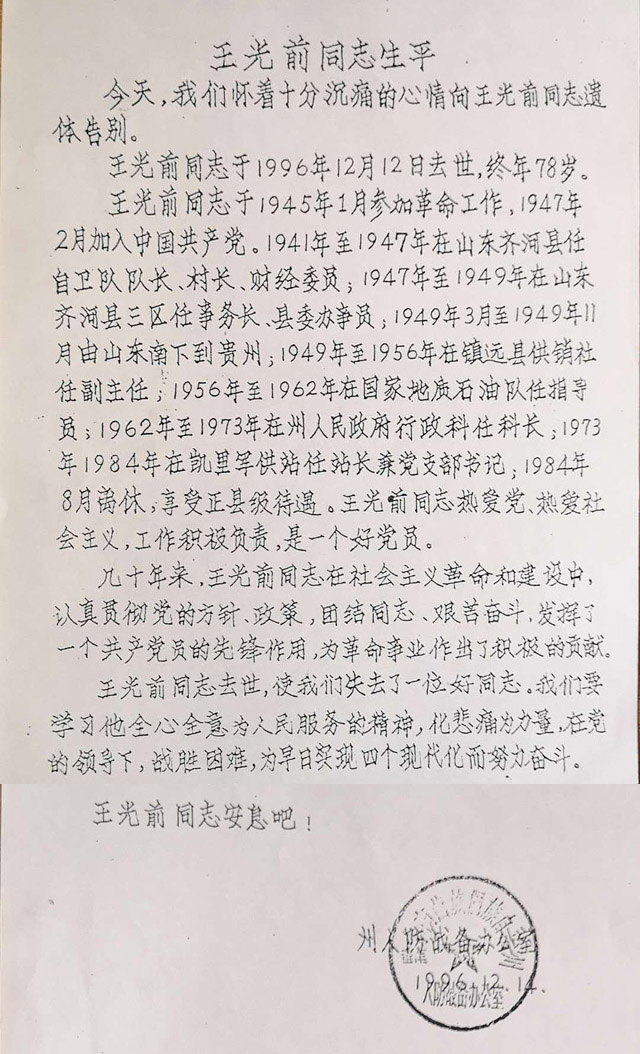 王光前同志生平
今天,我们怀着十分沉痛的心情向王光前同志遗
体告别。
王光前同志于1996年12月12日去世,终年78岁。
王光前同志于1945年1月参加革命工作,1947年
2月加入中国共产党。1941年至1947年在山东齐河县任
自卫队队长、村长、财经委员;1947年至1949年在山东
齐河县三区任事务长、县委办事员;1949年3月至1949年11
月由山东南下到贵州;1949年至1956年在镇远县供销社
任副主任;1956年至1962年在国家地质石油队任指导
员;1962年至1973年在州人民政府行政科任科长;1973
年1984年在凯里军供站任站长兼党支部书记;1984年
8月离休,享受正县级待遇。王光前同志热爱党、热爱社
会主义,工作积极负责,是一个好党员。
几十年来,王光前同志在社会主义革命和建设中,
认真贯彻党的方针、政策,团结同志、艰苦奋斗,发挥了
一个共产党员的先锋作用,为革命事业作出了积极的贡献。
王光前同志去世,使我们失去了一位好同志。我们要
学习他全心全意为人民服务的精神,化悲痛为力量,在党
的领导下,战胜困难,为早日实现四个现代化而努力奋斗。
王光前同志安息吧!
州人防战备办公室
1996.12.14.
人防战备办公室